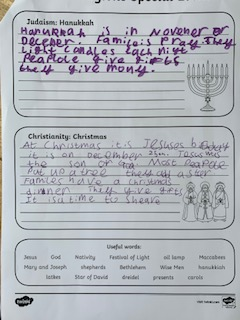 Judaism: Hanukkah
Hanukkah is in November or
December. Families pray. They
light candles each night
Peaople give gifts
they give money.
Christianity: Christmas
At Christmas it is Jesuses
it is on december 25th. Jesus was
the son of God. Most Peaple
Put up a tree they a star
Families have a christmas
dinner They give gifts
It is a time to sheare
Useful words:
Jesus God Nativity Festival of Light oil lamp Maccabees
Mary and Joseph shepherds Bethlehem Wise Men hanukkiah
latkes Star of David dreidel presents carols
twinkl